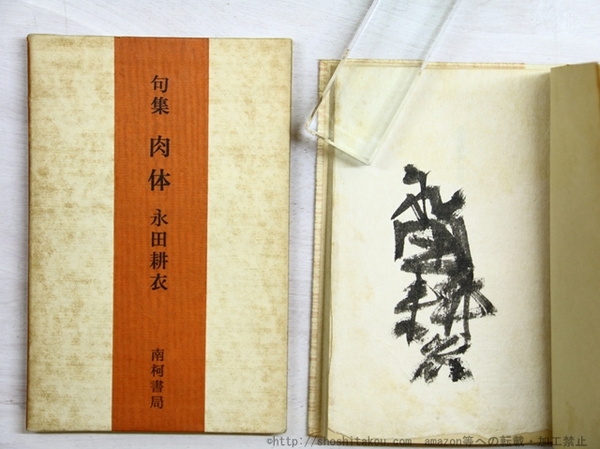 句集 肉体 永田耕衣 南柯書局
永田耕衣
©http://shoshitakou.com　amazon等への転載・加工禁止